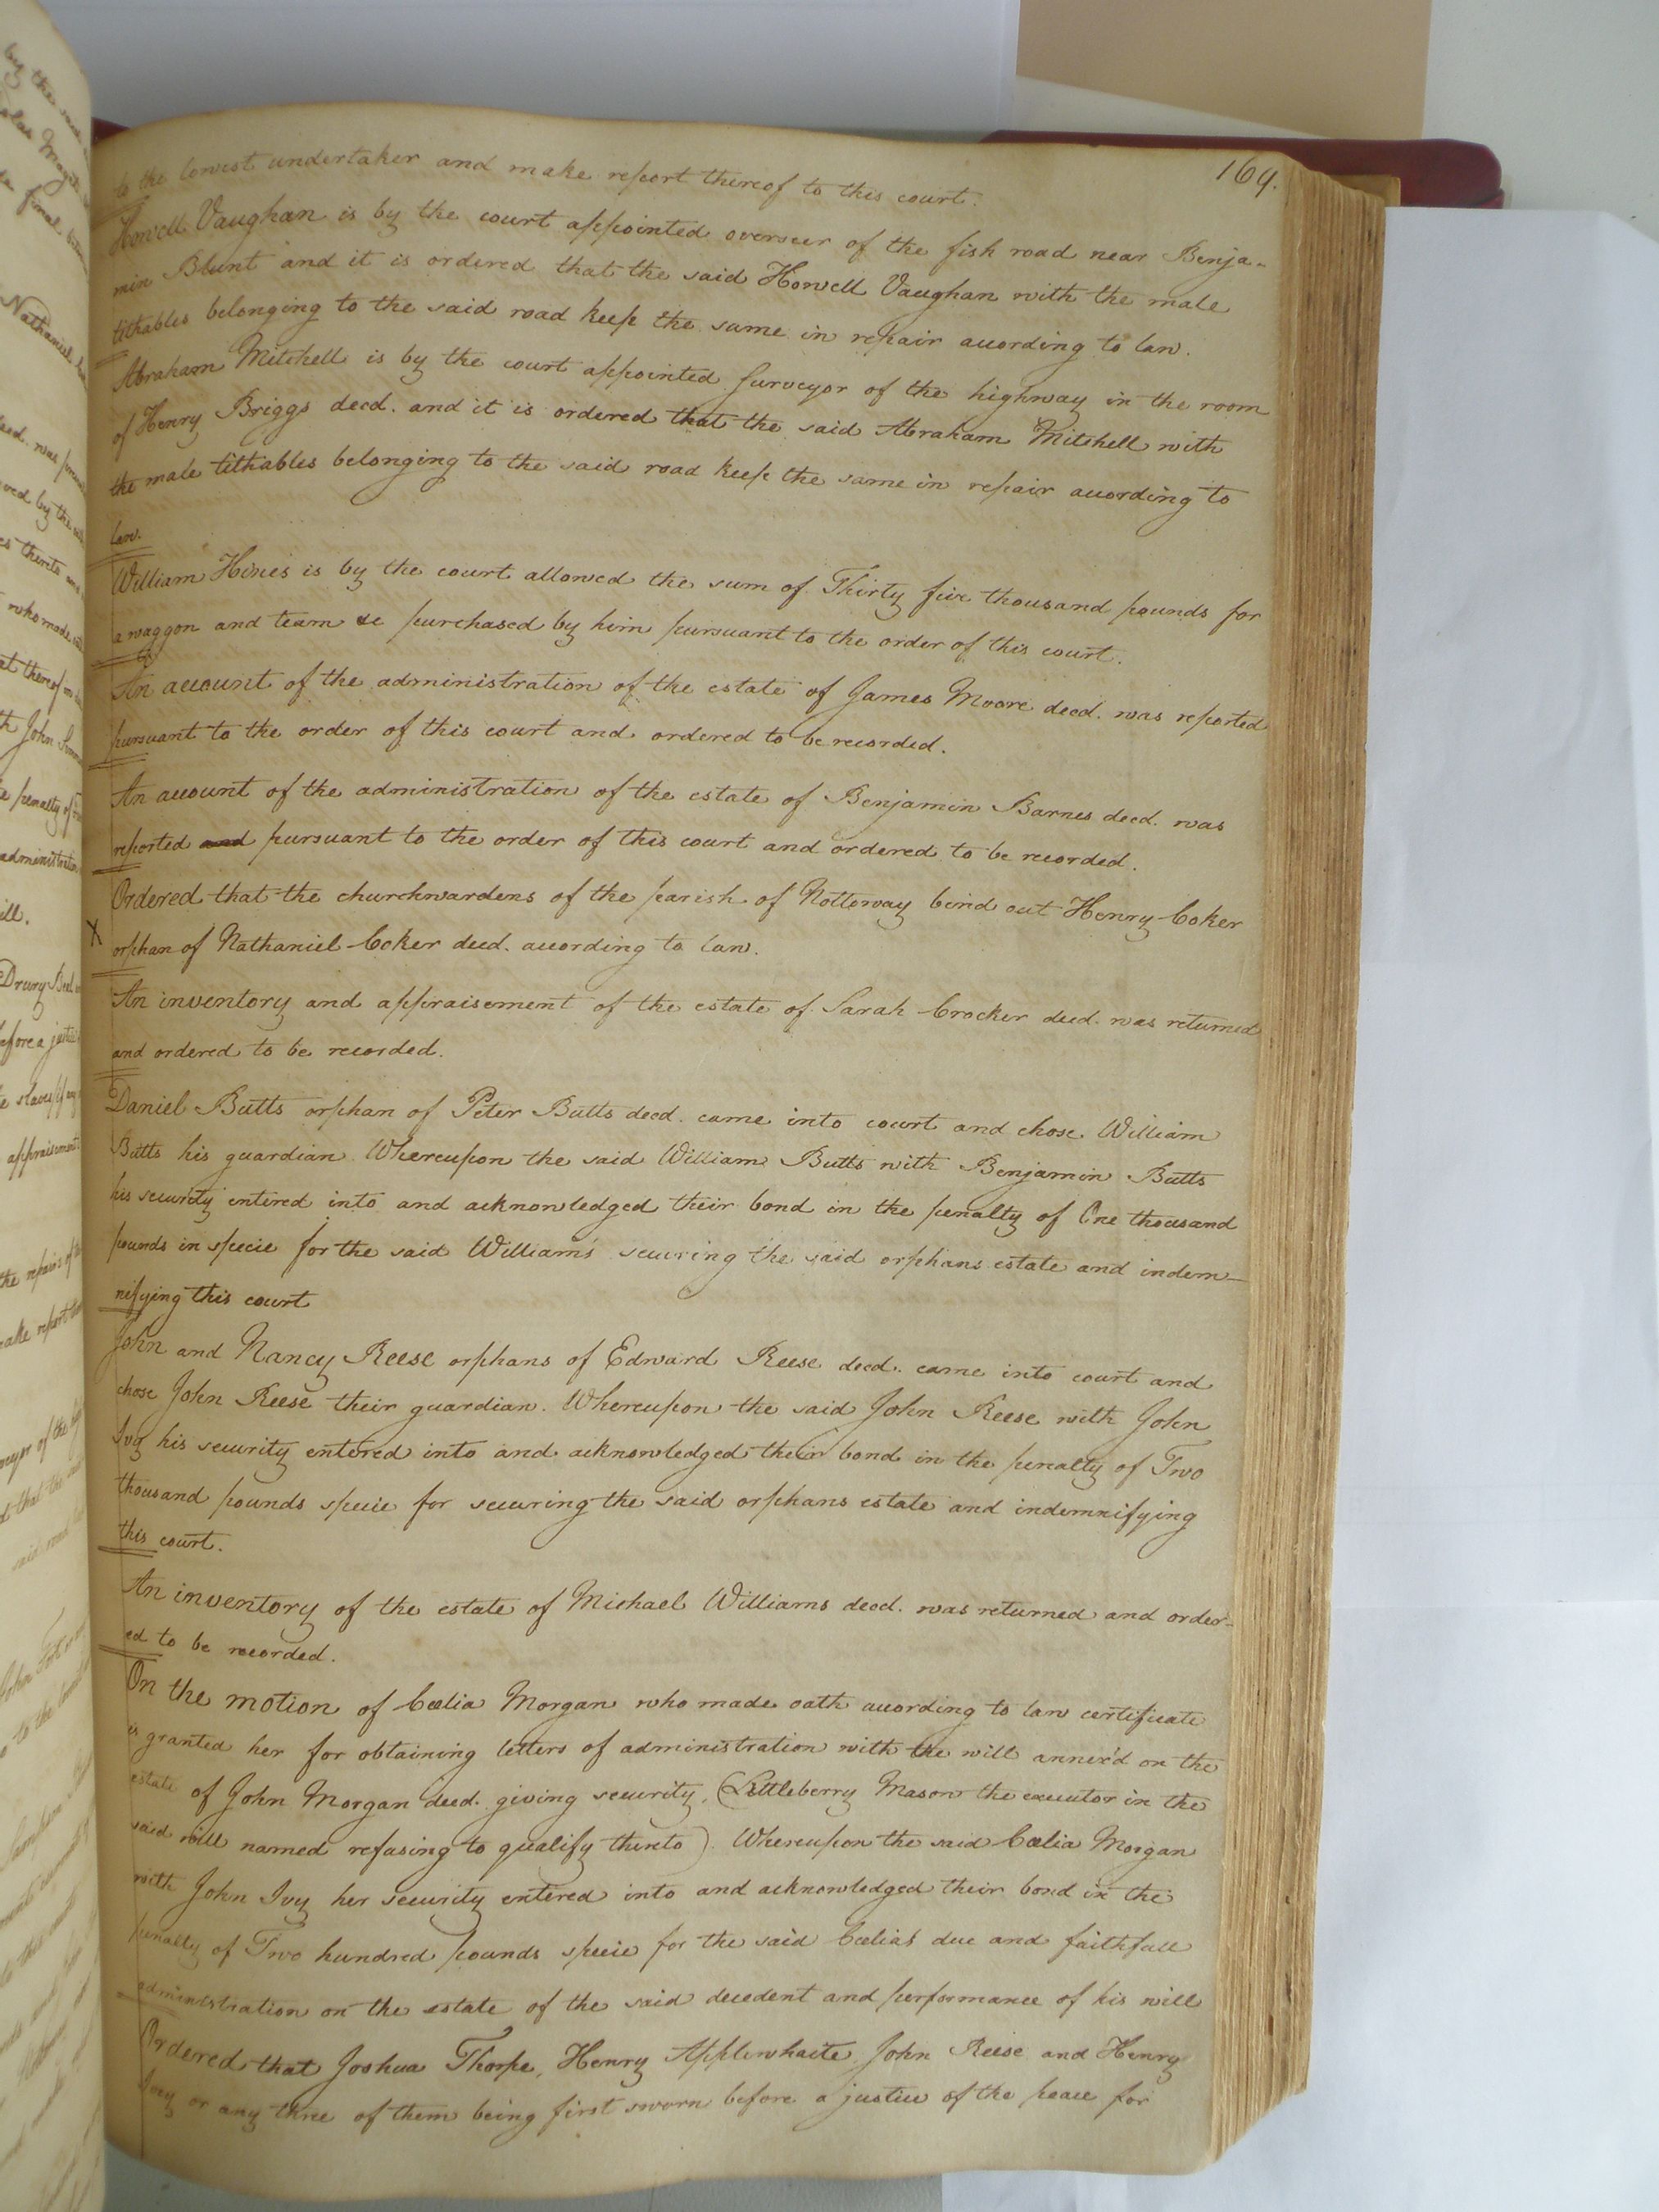 169.
to the lowest undertaker and make report thereof to this court.
Howell Vaughan is by the court appointed overseer of the fish road near Benja-
min Blunt and it is ordered that the said Howell Vaughan with the male
tithables belonging to the said road keep the same in repair according to law.
Abraham Mitchell is by the court appointed Surveyor of the highway in the room
of Henry Briggs decd. and it is ordered that the said Abraham Mitchell with
the male tithables belonging to the said road keep the same in repair according to
law.
William Hines is by the court allowed the sum of Thirty five thousand pounds for
a waggon and team &c purchased by him pursuant to the order of this court.
An account of the administration of the estate of James Moore decd. was reported
pursuant to the order of this court and ordered to be recorded.
An account of the administration of the estate of Benjamin Barnes decd. was
reported and pursuant to the order of this court and ordered to be recorded.
Ordered that the churchwardens of the parish of Nottoway bind out Henry Coker
X orphan of Nathaniel Coker decd. according to law.
An inventory and appraisement of the estate of Sarah Crocker decd. was returned
and ordered to be recorded.
Daniel Butts orphan of Peter Butts decd. came into court and chose William
Butts his guardian Whereupon the said William Butts with Benjamin Butts
his security entered into and acknowledged their bond in the penalty of One thousand
pounds in specie for the said William's securing the said orphans estate and indem-
nifying this court
John and Nancy Reese orphans of Edward Reese decd. came into court and
chose John Reese their guardian. Whereupon the said John Reese with John
Ivy his security entered into and acknowledged their bond in the penalty of Two
thousand pounds specie for securing the said orphans estate and indemnifying
this court.
An inventory of the estate of Michael Williams decd. was returned and order-
ed to be recorded.
On the motion of Cœlia Morgan who made oath according to law certificate
is granted her for obtaining letters of administration with the will annex'd on the
estate of John Morgan decd. giving security, (Littleberry Mason the executor in the
said will named refusing to qualify thereto). Whereupon the said Cœlia Morgan
with John Ivy her security entered into and acknowledged their bond in the
penalty of Two hundred pounds specie for the said Cœlia's due and faithfull
administration on the estate of the said decedent and performance of his will
Ordered that Joshua Thorpe, Henry Applewhaite, John Reese and Henry
Ivey or any three of them being first sworn before a justice of the peace for